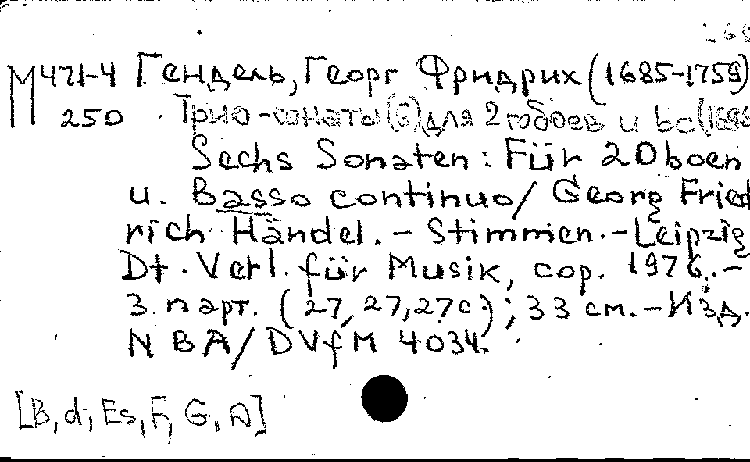 М 471-4 Гендель, Георг Фридрих (1685-1759)
250 Трио-сонаты (6) для 2 гобоев и bc (1696
Sechs Sonaten: Für 2 Oboen
u. Basso continuo/ Georg Fried
rich Händel. - Stimmen. - Leipzig
Dt. Verl. für Musik, cop. 1976. -
3 парт. (27, 27, 27 с.); 33 см. - Изд.
N BA/DVfM 4034.
[B, d, Es, F, G, A]